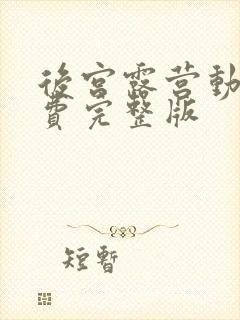 後宮露营動
費完整版
短暫